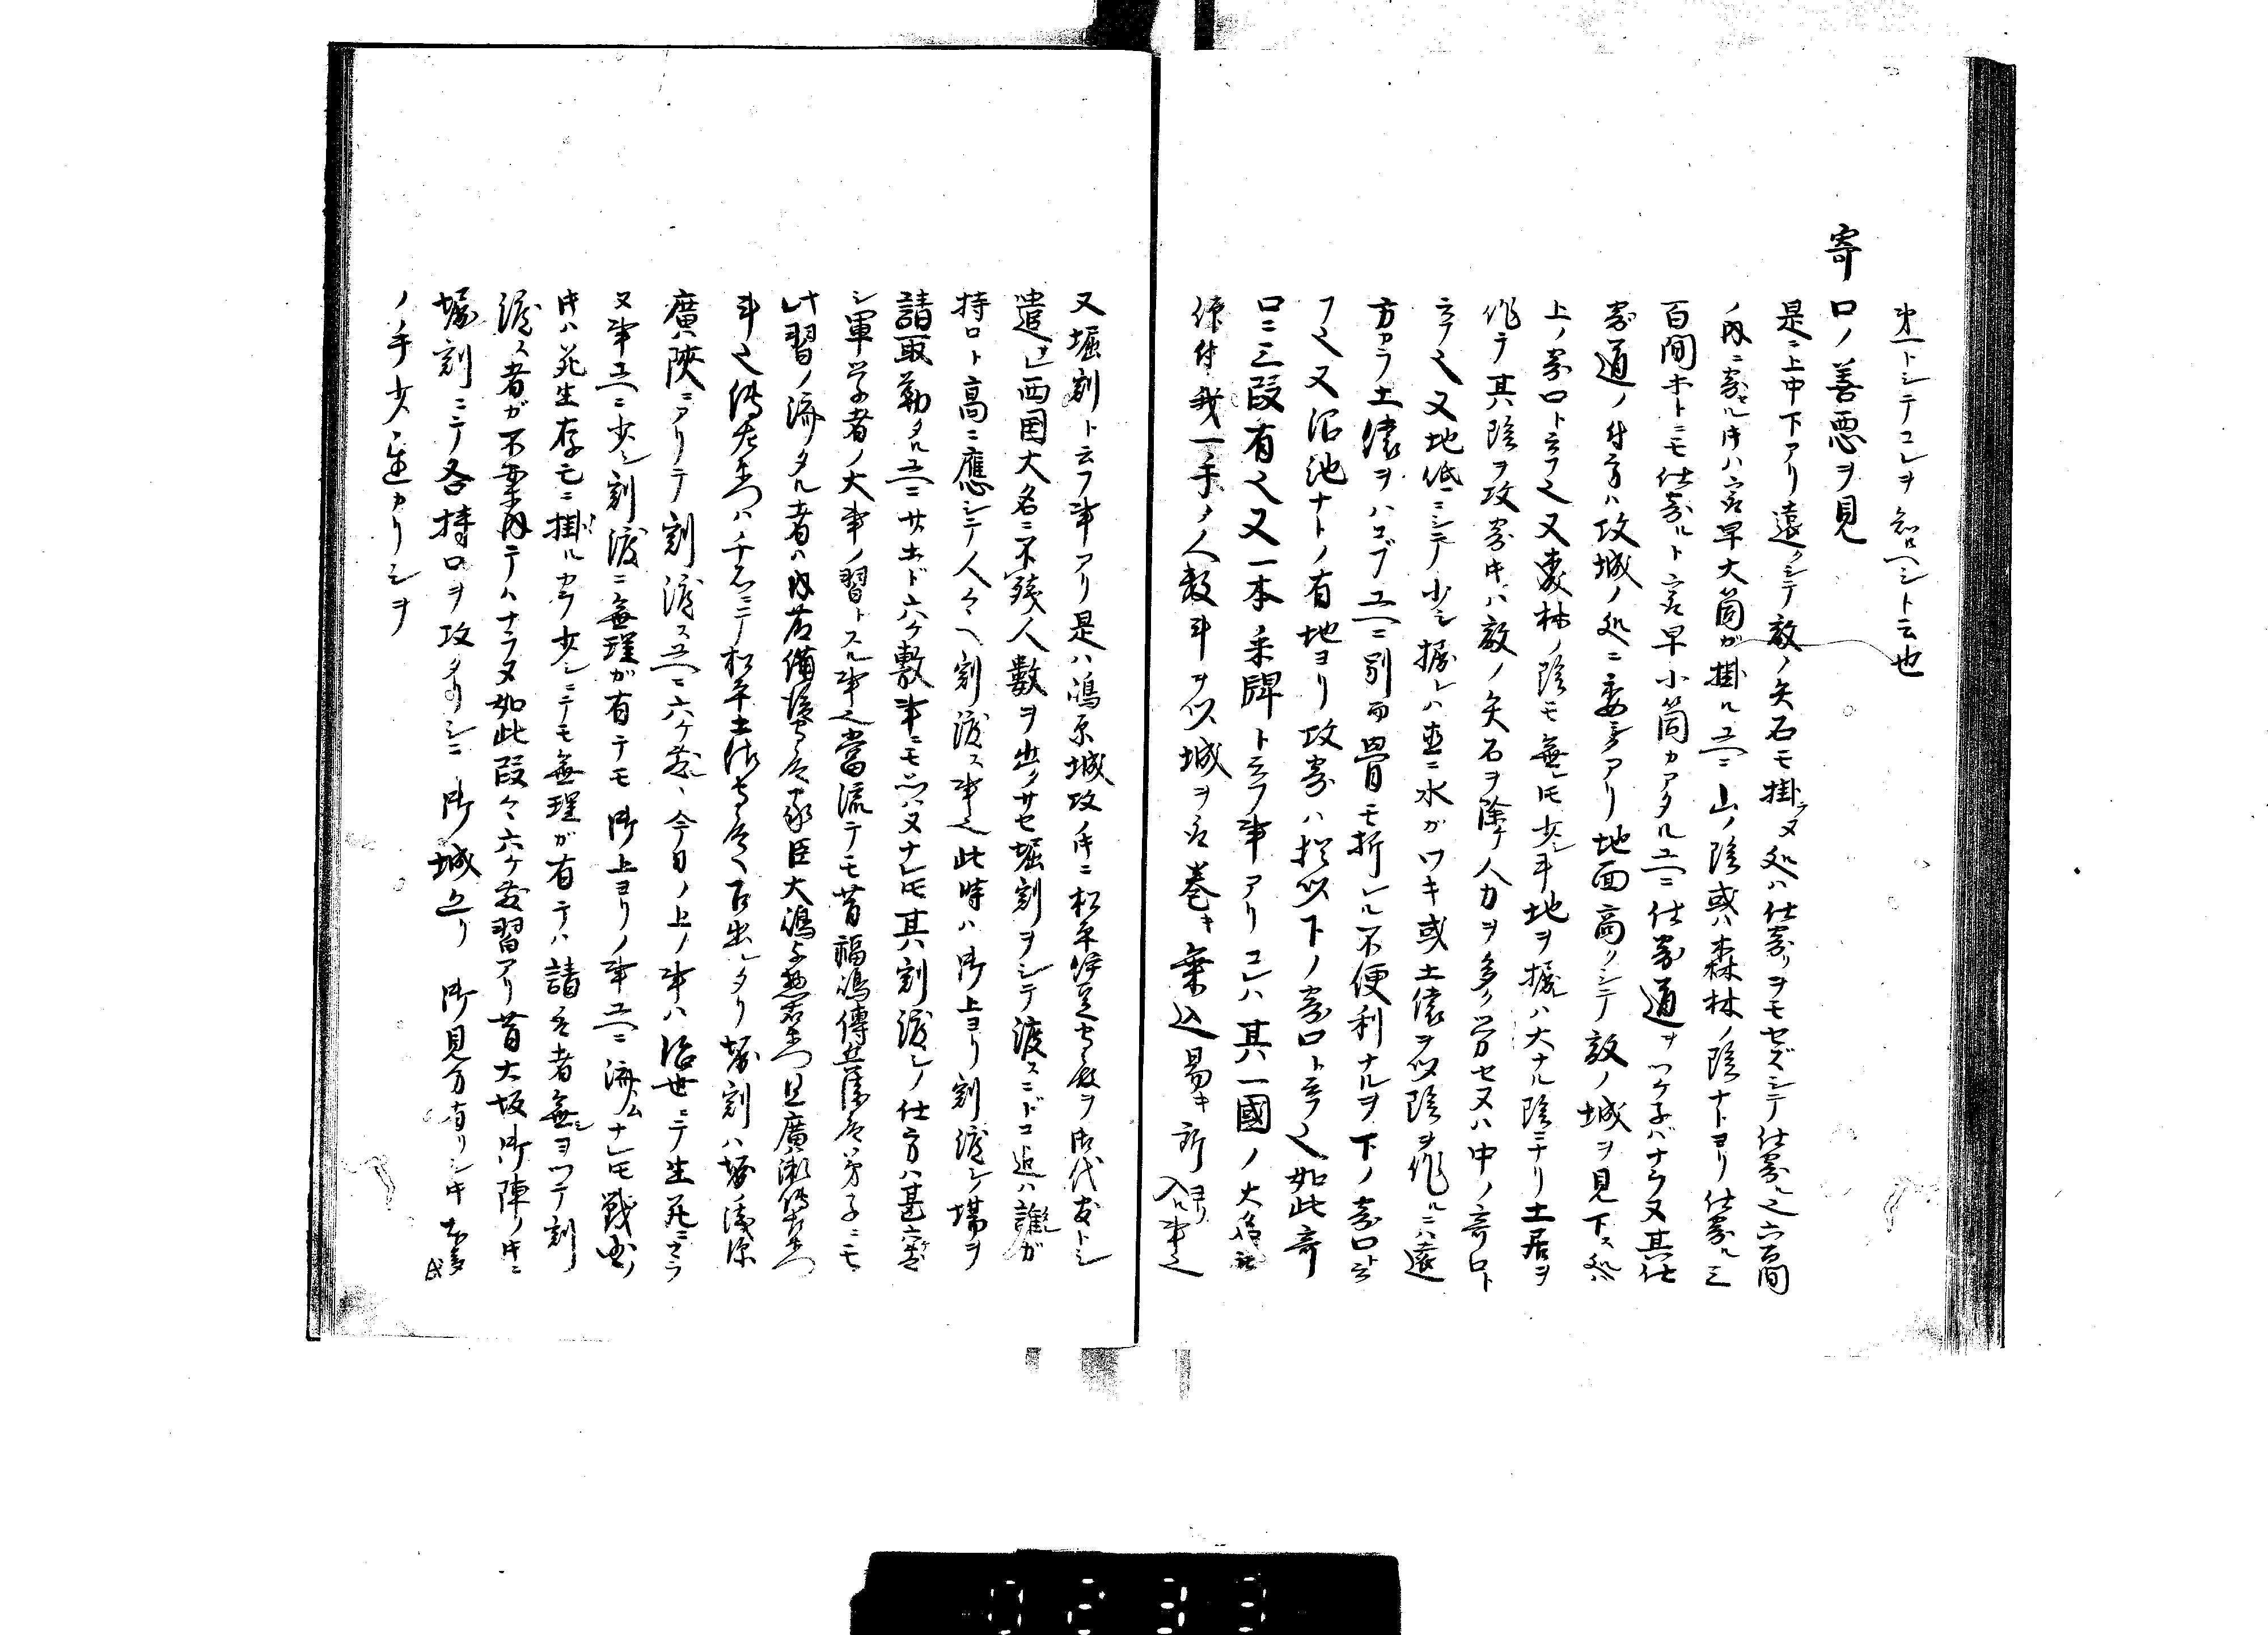 第一トシテコレヲ知ヘシト云也
寄口ノ善悪ヲ見
是ニ上中下アリ遠クシテ敵ノ矢石モ掛ラヌ処ハ仕寄リヲモセズシテ仕寄ル也六百間
ノ内ニ寄ル時ハ最早大筒ガ掛ル故ニ山ノ陰或ハ森林ノ陰ナトヨリ仕寄ル三
百間ホトニモ仕寄ルト最早小筒カアタル故ニ仕寄道ヲツケネバナラヌ其仕
寄道ノ付方ハ攻城ノ処ニ委シクアリ地面高クシテ敵ノ城ヲ見下ス処ハ
上ノ寄口ト云フ也又森林ノ陰モ無トモ少シ平地ヲ掘レハ大ナル陰ニナリ土居ヲ
作テ其陰ヲ攻寄時ハ敵ノ矢石ヲ除ケ人力ヲ多ク労セヌハ中ノ寄口ト
云フ也又地低ニシテ少シ掘レハ直ニ水ガワキ或土俵ヲ以陰ヲ作ルニハ遠
方カラ土俵ヲハコブ故ニ別而骨モ折レル不便利ナルヲ下ノ寄口ト云
フ也又沼池ナトノ有地ヨリ攻寄ハ猶以下ノ寄口ト云フ也如此寄
口ニ三段有也又一本乗牌ト云フ事アリコレハ其一國ノ大
付我一手ノ人数斗ヲ以城ヲ巻キ乗込易キ所ヨリ入ル事也
又堀割ト云フ事アリ是ハ嶋原城攻ノ時ニ松平伊豆守殿ヲ御代官トシ
遣サレ西国大名ニ不残人数ヲ出サセ堀割ヲシテ渡スニドコ迄ハ誰ガ
持口ト高ニ應シテ人々ヘ割渡ス事也此時ハ御上ヨリ割渡シノ場ヲ
請取勤タル故ニサホド六ケ敷事ニモ思ハヌナレトモ其割渡シノ仕方ハ甚六ケ
シ軍学者ノ大事ノ習トスル事也當流テモ昔福嶋傳兵衛弟子ニモ
此習ノ済タル者ハ内藤備後守家臣大嶋惣右衛門且廣瀬傳左衛門
斗也傳左衛門ハ千石ニテ松平土佐守ヘ召出レタリ堀割ハ堀ノ浅深
廣陝ニアリテ割渡ス故ニ六ケ敷今日ノ上ノ事ハ治世ニテ生死ニカヽラ
ヌ事故ニ少シ割渡ニ無理ガ有テモ御上ヨリノ事故ニ済ムナレトモ戦国ノ
時ハ死生存亡ニ掛ル故少シニテモ無理ガ有テハ請ル者無シヨツテ割
渡ス者ガ不案内テハナラヌ如此段々六ケ敷習アリ昔大坂御陣ノ時ニ
堀割ニテ各持口ヲ攻タリシニ御城ヨリ御見分有リシ時本多氏
ノ手少シ進カリシヲ